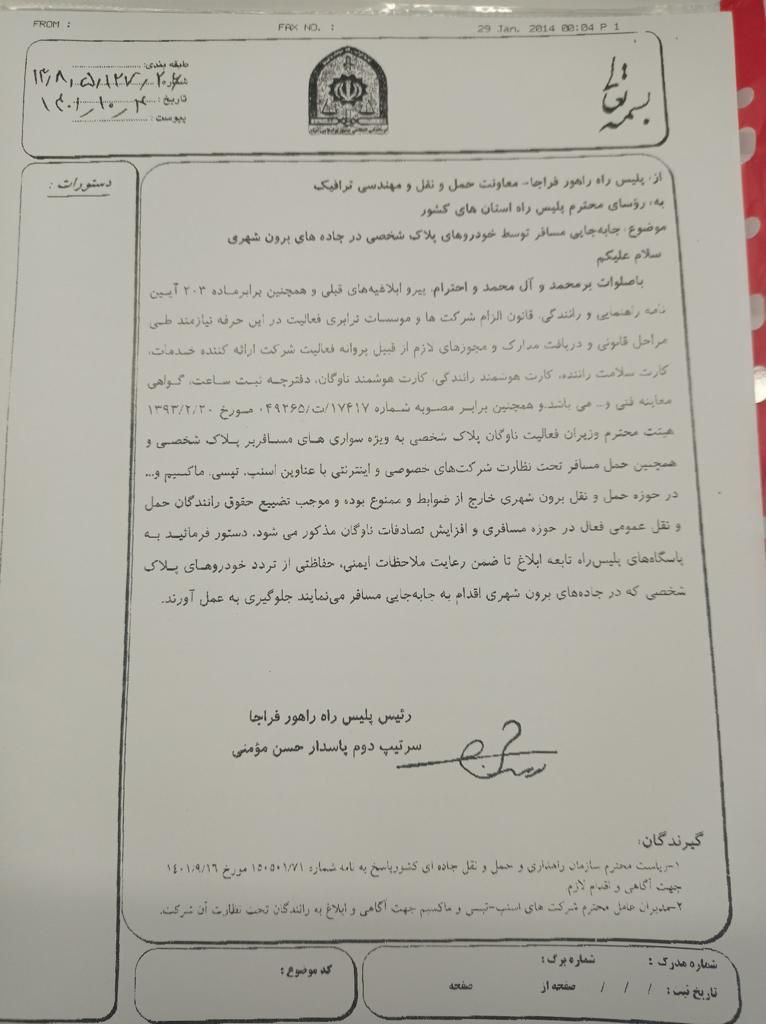 FROM :
FAX NO. :
29 Jan. 2014 00:04 P 1
بسمه تعالی
طبقه بندی:
شماره
تاریخ: ۱۴۰۱/۱۰/۴
پیوست:
دستورات:
از: پلیس راه راهور فراجا- معاونت حمل و نقل و مهندسی ترافیک
به: رؤسای محترم پلیس راه استان های کشور
موضوع: جابه‌جایی مسافر توسط خودروهای پلاک شخصی در جاده های برون شهری
سلام علیکم
باصلوات برمحمد و آل محمد و احترام، پیرو ابلاغیه‌های قبلی و همچنین برابرماده ۲۰۳ آیین
نامه راهنمایی و رانندگی، قانون الزام شرکت ها و موسسات ترابری فعالیت در این حرفه نیازمند طی
مراحل قانونی و دریافت مدارک و مجوزهای لازم از قبیل پروانه فعالیت شرکت ارائه کننده خدمات،
کارت سلامت راننده، کارت هوشمند رانندگی، کارت هوشمند ناوگان، دفترچه ثبت ساعت، گواهی
معاینه فنی و... می باشد.و همچنین برابر مصوبه شماره ۱۷۴۱۷/ت/۰۴۹۲۶۵ مورخ ۱۳۹۳/۲/۲۰
هیئت محترم وزیران فعالیت ناوگان پلاک شخصی به ویژه سواری های مسافربر پلاک شخصی و
همچنین حمل مسافر تحت نظارت شرکت‌های خصوصی و اینترنتی با عناوین اسنپ، تپسی، ماکسیم و...
در حوزه حمل و نقل برون شهری خارج از ضوابط و ممنوع بوده و موجب تضییع حقوق رانندگان حمل
و نقل عمومی فعال در حوزه مسافری و افزایش تصادفات ناوگان مذکور می شود. دستور فرمائید به
پاسگاه‌های پلیس‌راه تابعه ابلاغ تا ضمن رعایت ملاحظات ایمنی، حفاظتی از تردد خودروهای پلاک
شخصی که در جاده‌های برون شهری اقدام به جابه‌جایی مسافر می‌نمایند جلوگیری به عمل آورند.
رئیس پلیس راه راهور فراجا
سرتیپ دوم پاسدار حسن مؤمنی
گیرندگان:
۱-ریاست محترم سازمان راهداری و حمل و نقل جاده ای کشورپاسخ به نامه شماره ۱۵۰۵۰۱/۷۱ مورخ ۱۴۰۱/۹/۱۶
جهت آگاهی و اقدام لازم.
۲-مدیران عامل محترم شرکت های اسنپ-تپسی و ماکسیم جهت آگاهی و ابلاغ به رانندگان تحت نظارت آن شرکت.
شماره مدرک : شماره برگ :
تاریخ ثبت : / / / صفحه از صفحه
کد موضوع :